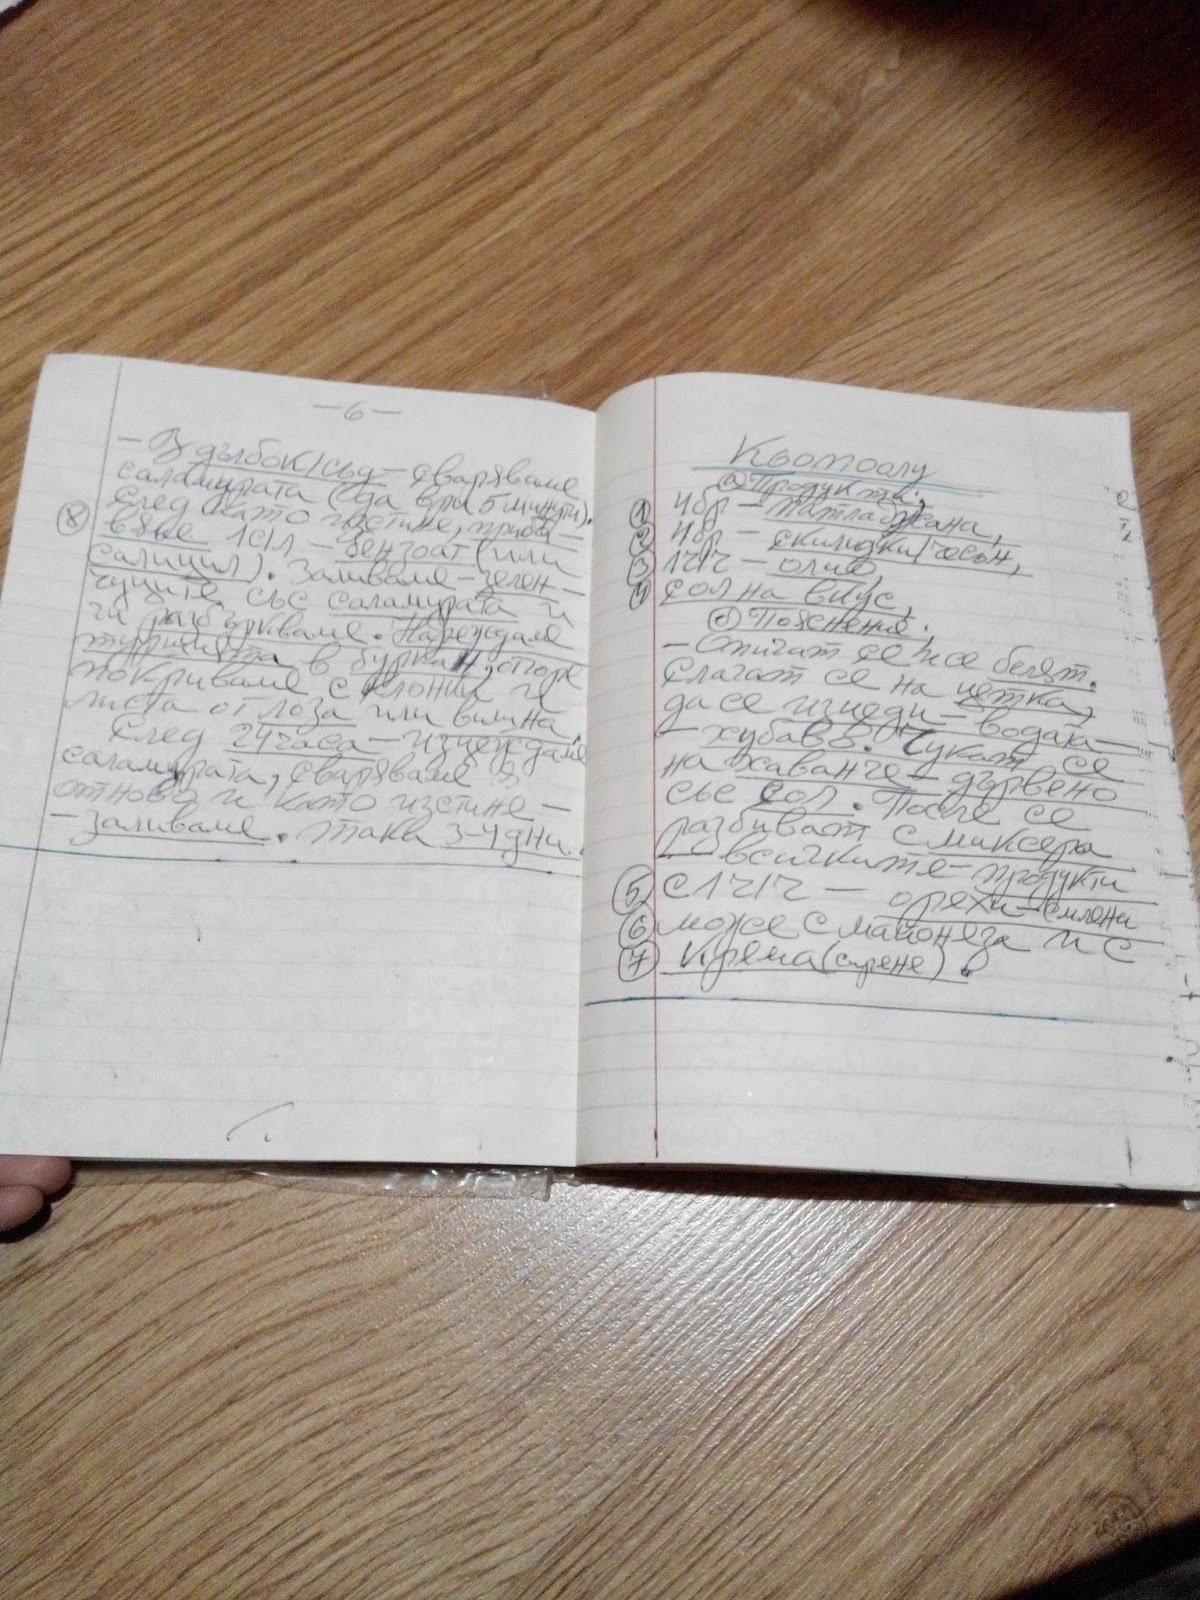 —6—
— В дълбок/съд – сваряваме
саламурата (да ври 5 минути).
След като изстине, приба-
⑧ вяме 1с/л – бензоат (или
салицил). Заливаме – зелен-
чуците със саламурата и
ги разбъркваме. Нареждаме
туршията в буркан, отгоре
покриваме с клонки и
листа от лоза или вишна.
След 24 часа – изцеждаме
саламурата, сваряваме я
отново и като изстине –
– заливаме. Така 3–4 дни.
Кьопоолу
Продукти:
① 4бр – патладжана,
② 4бр – скилидки/чесън,
③ 1ч/ч – олио
④ сол на вкус,
Пояснения,
– Опичат се и се белят.
Слагат се на цетка,
да се изцеди – водата –
– хубавВ. Чукат се
на хаванче – дървено
със сол. После се
разбиват с миксера
– всичките – продукти
⑤ с 1ч/ч – орехи – смлени
⑥ може с майонеза и с
⑦ Крема (сирене).